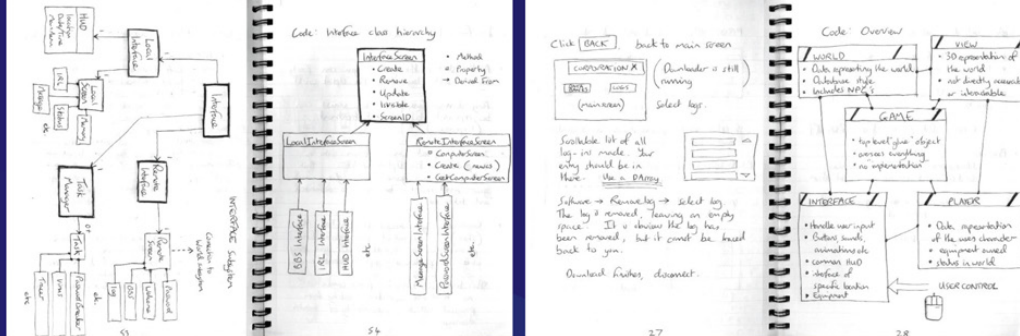 HUD
Location
Date/Time
Main Menu
Local
Interface
Local
Screen
IRL
Status
Memory
Message
etc
Interface
Remote
Interface
Task
Manager
Remote
Screen
Task
Connection to
World subsystem
INTERFACE Subsystem
Log
BBS
Password
etc
Password Breaker
Virus
Tracer
etc
53
Code: Interface class hierarchy
InterfaceScreen
• Create
• Remove
• Update
• IsVisible
• ScreenID
• Method
• Property
→ Derived From
LocalInterfaceScreen
RemoteInterfaceScreen
= ComputerScreen
• Create (
• GetComputerScreen
BBS Interface
IRL Interface
HUD Interface
etc
MessageScreenInterface
PasswordScreenInterface
etc.
54
Click BACK. back to main screen
CORPORATION X
LOGS
(main screen)
(Downloader is still
running
Select logs.
Scrollable list of all
log-ins made. Your
entry should be in
there. Use a DArray
Software → Remove log → select log
The log is removed, leaving an empty
space. It is obvious the log has
been removed, but it cannot be traced
back to you.
Download finishes, disconnect.
27
Code: Overview
WORLD
• Data representing the world
• Database style
• Includes NPC's
VIEW
• 3D representation of
the world
• not directly accessed
or interactable
GAME
• top level "glue" object
• oversees everything
• no implementation
INTERFACE
• Handle user input
• Buttons, sounds,
animations etc
• common HUD
• interface of
specific location
• Equipment
PLAYER
• Data representation
of the users character
• equipment owned
• status in world
USER CONTROL
28